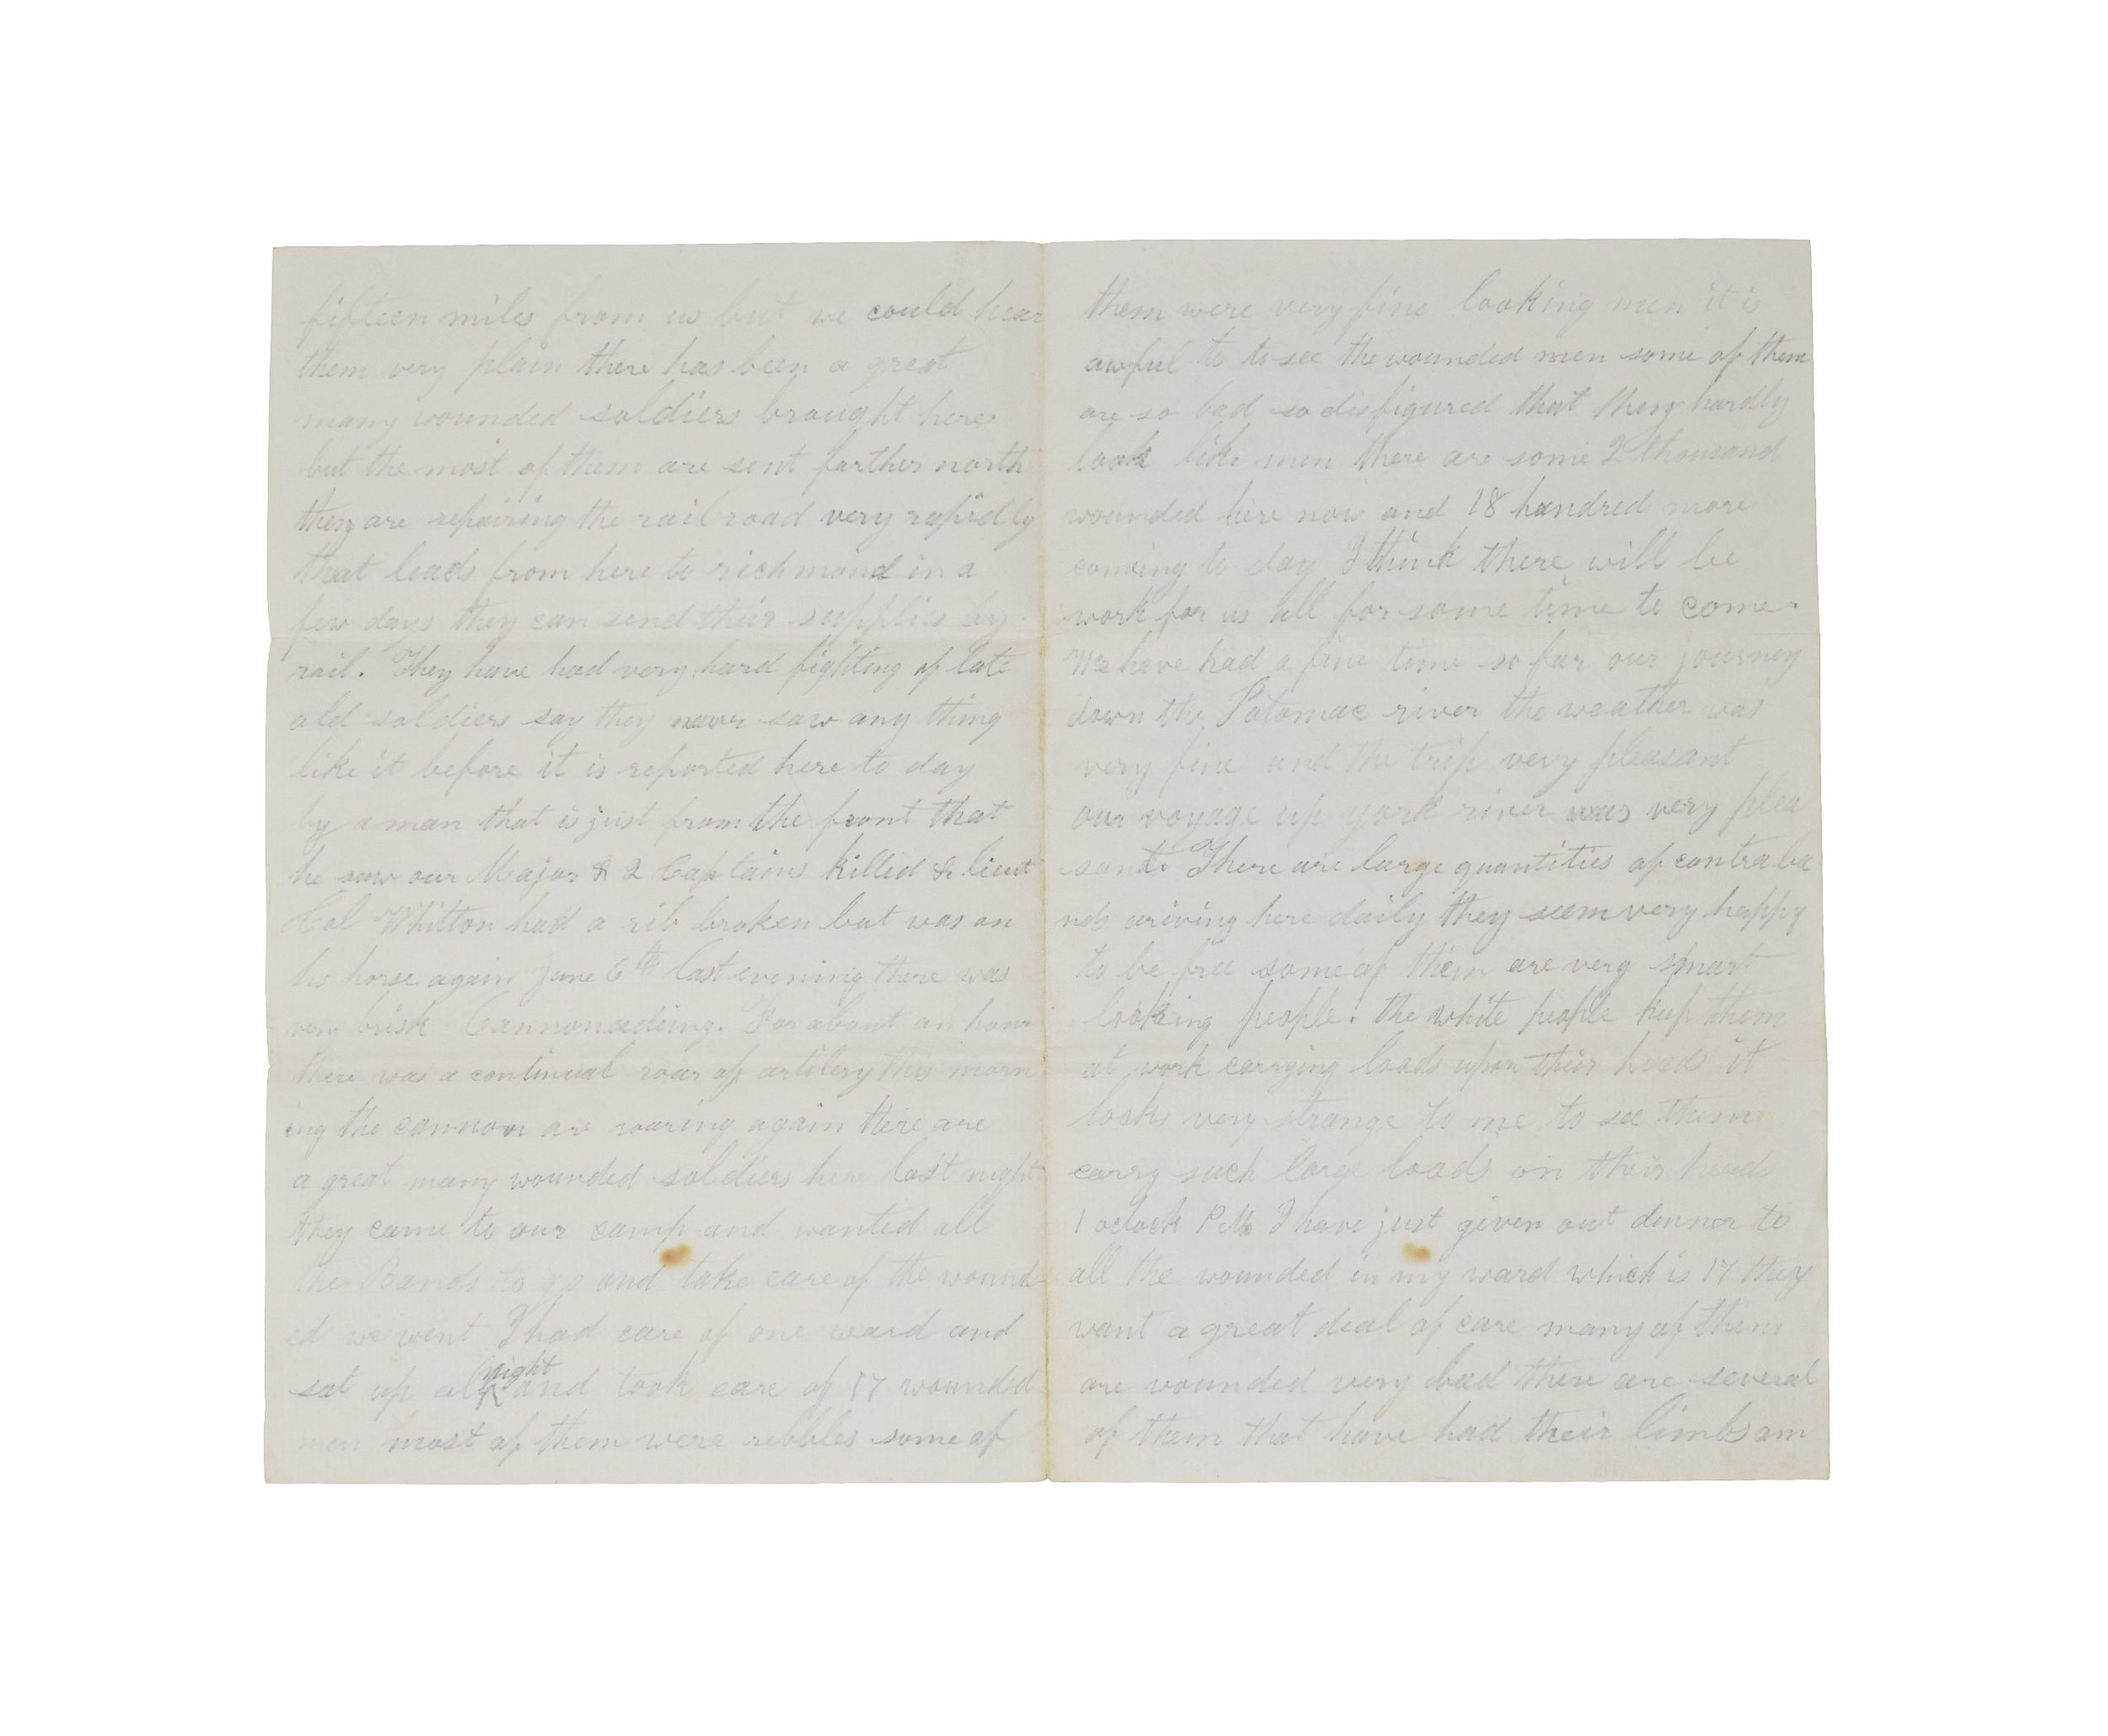 fifteen miles from us but we could hear
them very plain there has been a great
many wounded soldiers brought here
but the most of them are sent farther north
they are repairing the rail road very rapidly
that leads from here to richmond in a
few days they can send their supplies by
rail. They have had very hard fighting of late
old soldiers say they never saw any thing
like it before it is reported here to day
by a man that is just from the front that
he saw our Major & 2 Captains killed & lieut
Col Whitton had a rib broken but was on
his horse again June 6th last evening there was
very brisk Cannonadeing. For about an hour
there was a continual roar of artilery this morn
ing the cannon are roaring again there are
a great many wounded soldiers here last night
they came to our camp and wanted all
the Bands to go and take care of the wound
ed we went I had care of one ward and
sat up all night and took care of 17 wounded
men most of them were rebbles some of
them were very fine looking men it is
awful to to see the wounded men some of them
are so bad so disfigured that they hardly
look like men there are some 2 thousand
wounded here now and 18 hundred more
coming to day I think there will be
work for us all for some time to come.
We have had a fine time so far our journey
down the Potomac river the weather was
very fine and the trip very pleasant
our voyage up york river was very plea
sant. There are large quantities of contraba
nds ariving here daily they seem very happy
to be free some of them are very smart
looking people. the white people keep them
at work carrying loads upon their heads it
looks very strange to me to see them
carry such large loads on their head
1 oclock P.M. I have just given out dinner to
all the wounded in my ward which is 17 they
want a great deal of care many of them
are wounded very bad there are several
of them that have had their limbs am